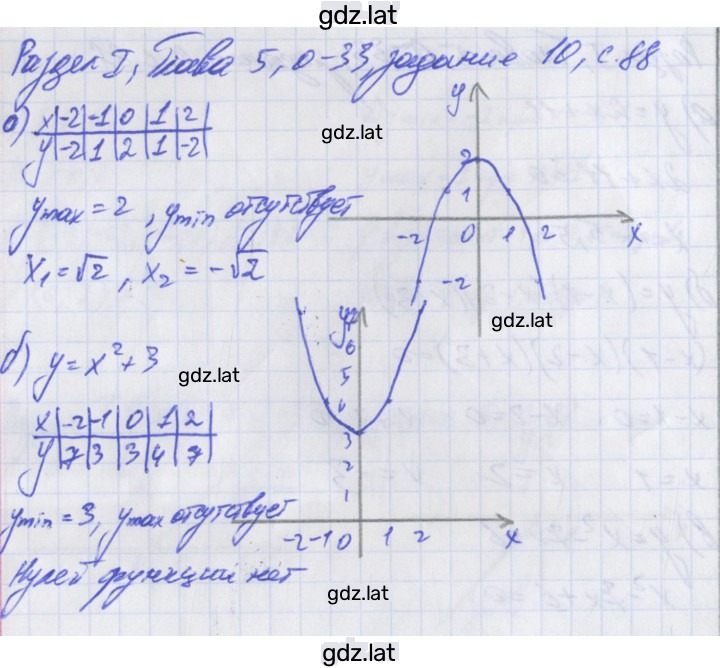 gdz.lat
Раздел I, Глава 5, 0-33, задание 10, с.88
а) x|-2|-1|0|1|2|
y|-2|1|2|1|-2|
gdz.lat
ymax = 2, ymin отсутствует
x₁ = √2, x₂ = -√2
y
2
1
-2 0 1 2 x
-2
gdz.lat
б) y = x² + 3
gdz.lat
x|-2|-1|0|1|2|
y|7|3|3|4|7|
ymin = 3, ymax отсутствует
Нулей функции нет
y
7
6
5
4
3
2
1
-2 -1 0 1 2 x
gdz.lat
gdz.lat